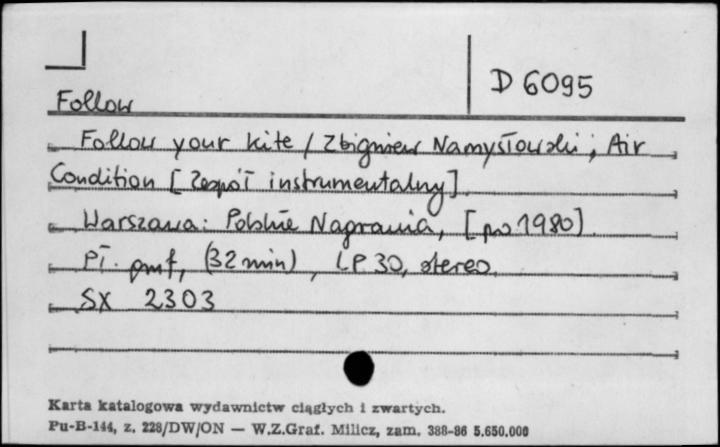 D 6095
Follow
Follow your kite / Zbigniew Namysłowski ; Air
Condition [Zespół instrumentalny]
Warszawa : Polskie Nagrania, [po 1980]
Pł. gmf, (32 min), LP 30, stereo
SX 2303
Karta katalogowa wydawnictw ciągłych i zwartych.
Pu-B-144, z. 228/DW/ON — W.Z.Graf. Milicz, zam. 388-86 5.650.000